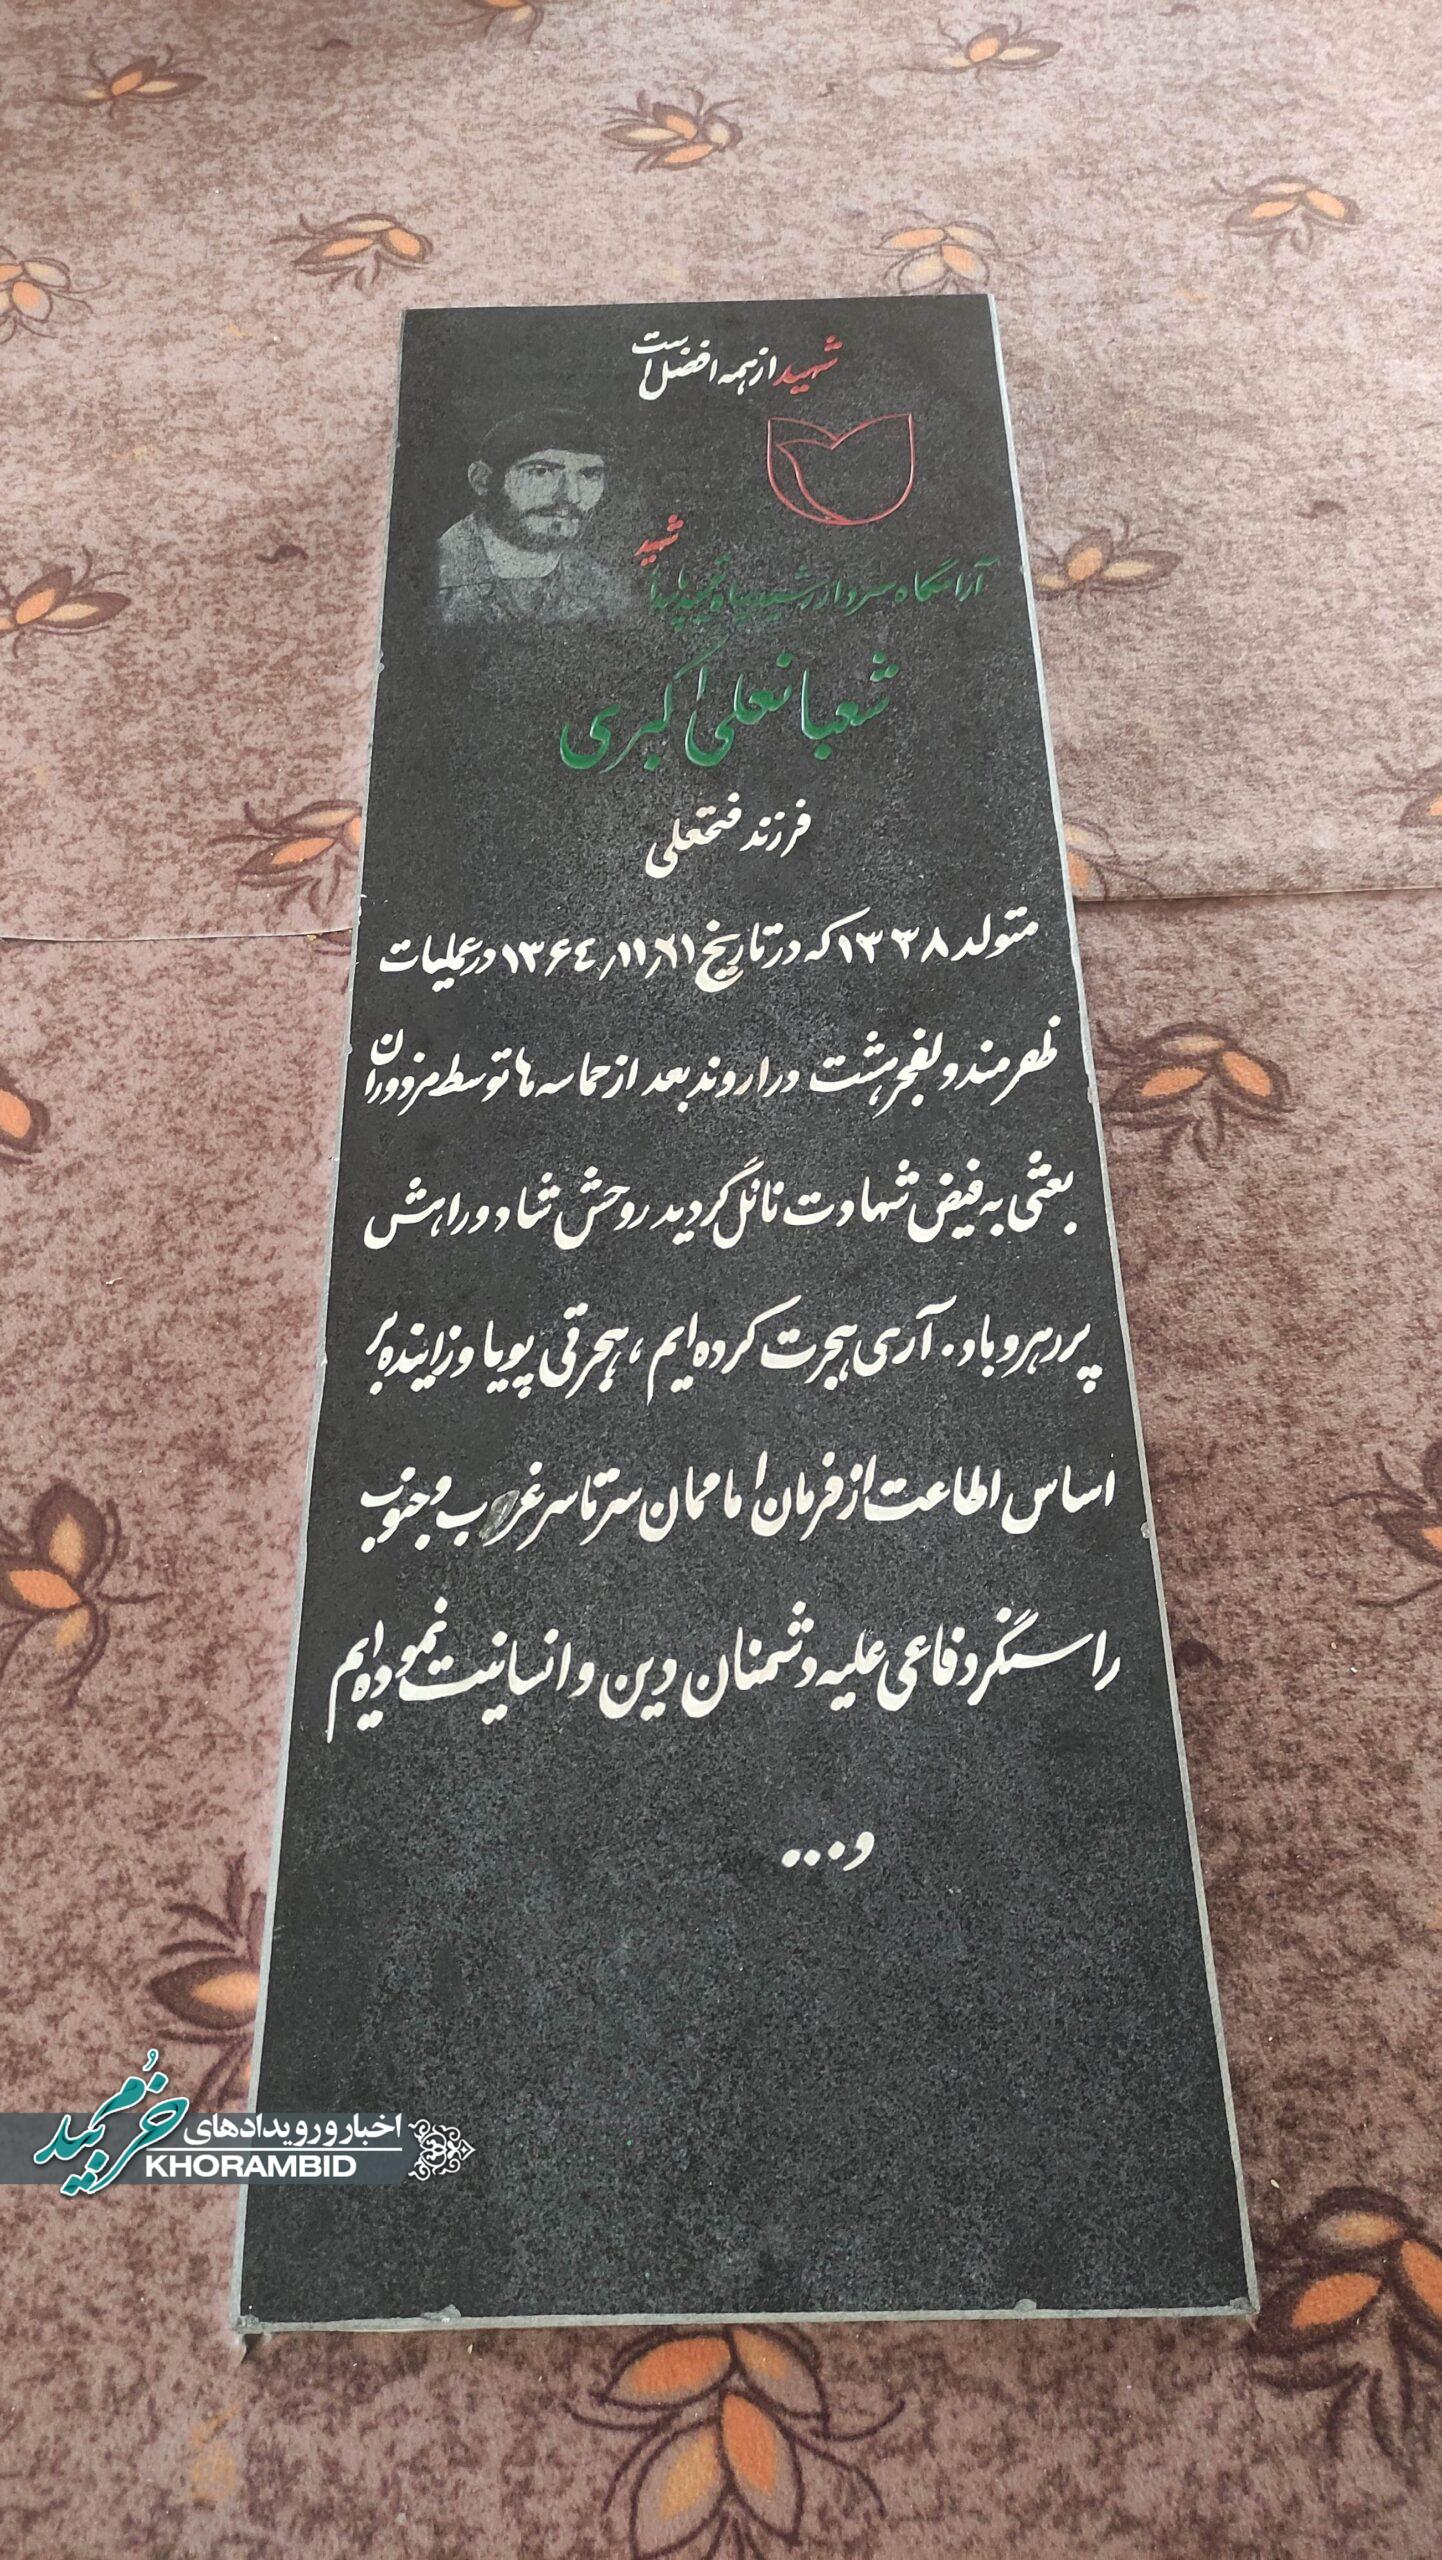 شهید از همه افضل است
شهید
آرامگاه سردار رشید سپاه و
شعبانعلی اکبری
فرزند فتحعلی
متولد ۱۳۳۸ که در تاریخ ۱۳۶۴/۱۱/۲۱ در عملیات
ظفرمند والفجر هشت در اروند بعد از حماسه ها توسط مزدوران
بعثی به فیض شهادت نائل گردید روحش شاد و راهش
پر رهرو باد . آری هجرت کرده ایم ، هجرتی پویا و زاینده بر
اساس اطاعت از فرمان اماممان سرتاسر غرب و جنوب
را سنگر دفاعی علیه دشمنان دین و انسانیت نموده ایم
و...
اخبار و رویدادهای
خرمبید
KHORAMBID